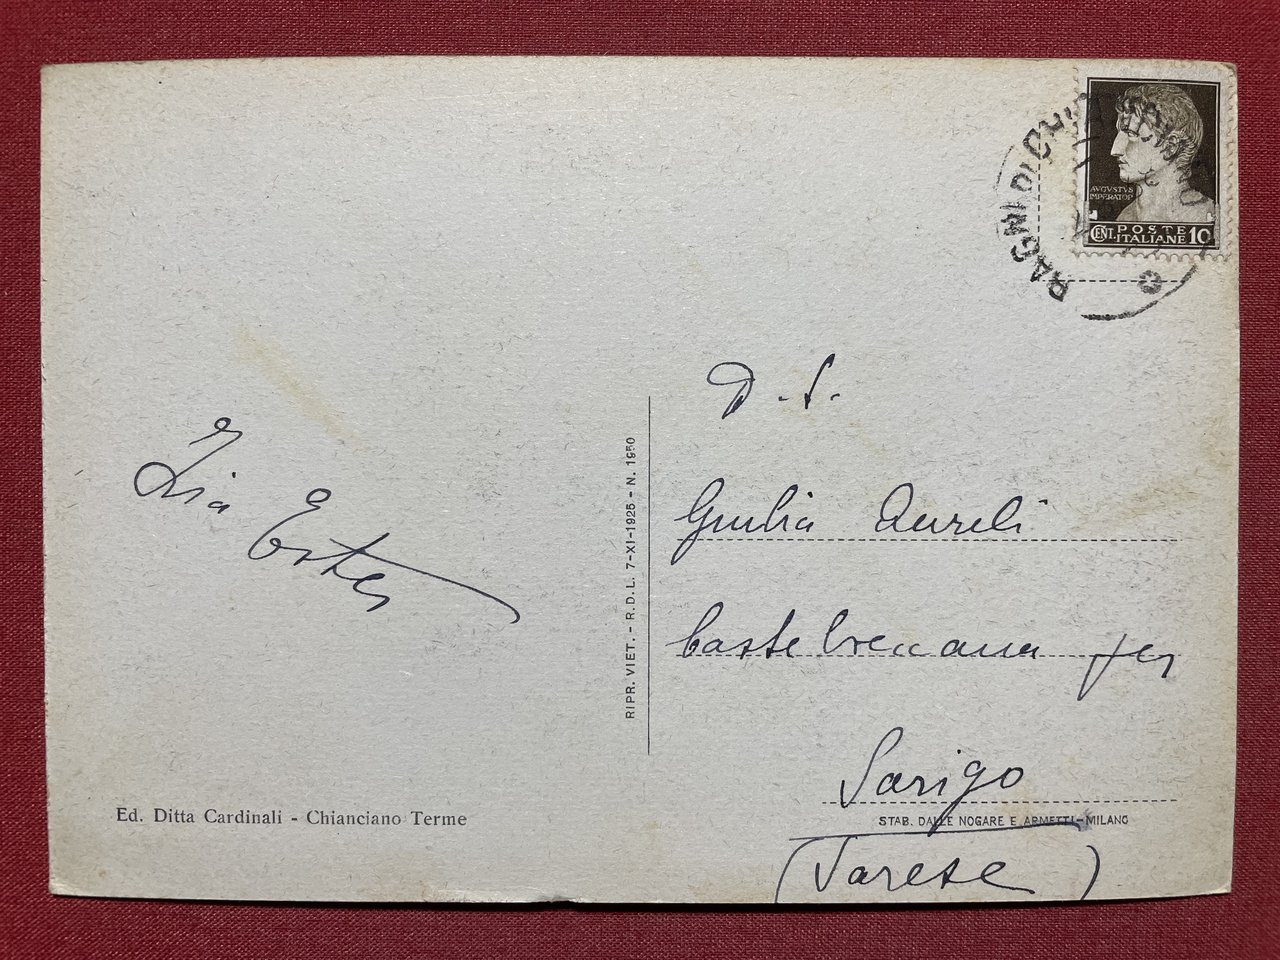 BAGNI DI CHIANCIANO
AVGVSTVS
IMPERATOR
CENT. POSTE ITALIANE 10
D. S.
Zia Ester
Giulia Aureli
Castelveccana per
Sarigo
(Varese)
RIPR. VIET. - R. D. L. 7-XI-1925 - N. 1950
Ed. Ditta Cardinali - Chianciano Terme
STAB. DALLE NOGARE E ARMETTI - MILANO